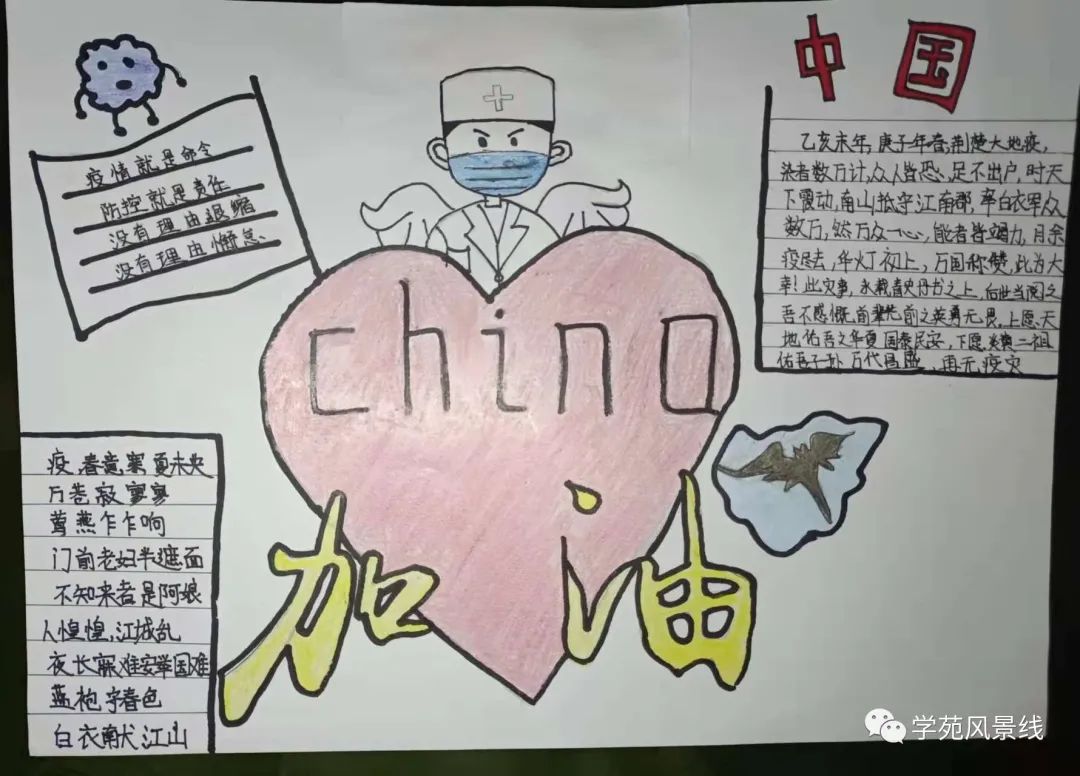 中国
疫情就是命令
防控就是责任
没有理由退缩
没有理由懈怠
乙亥末年,庚子年春,荆楚大地疫,
染者数万计,众人皆恐,足不出户,时天
下震动,南山抵守江南郡,率白衣军众
数万,然万众一心,能者皆竭力,月余
疫尽去,华灯初上,万国称赞,此为大
幸!此灾事,永载青史丹书之上,后世当阅之
吾不感慨,前辈先前之英勇无畏,上愿,天
地佑吾之华夏国泰民安,下愿,炎黄二祖
佑吾子孙万代昌盛,再无疫灾
china
加油
疫,春竟寒夏未央
万巷寂寥寥
莺燕乍乍响
门前老妇半遮面
不知来者是阿娘
人惶惶,江城乱
夜长寐难安举国难
蓝袍守春色
白衣献江山
学苑风景线